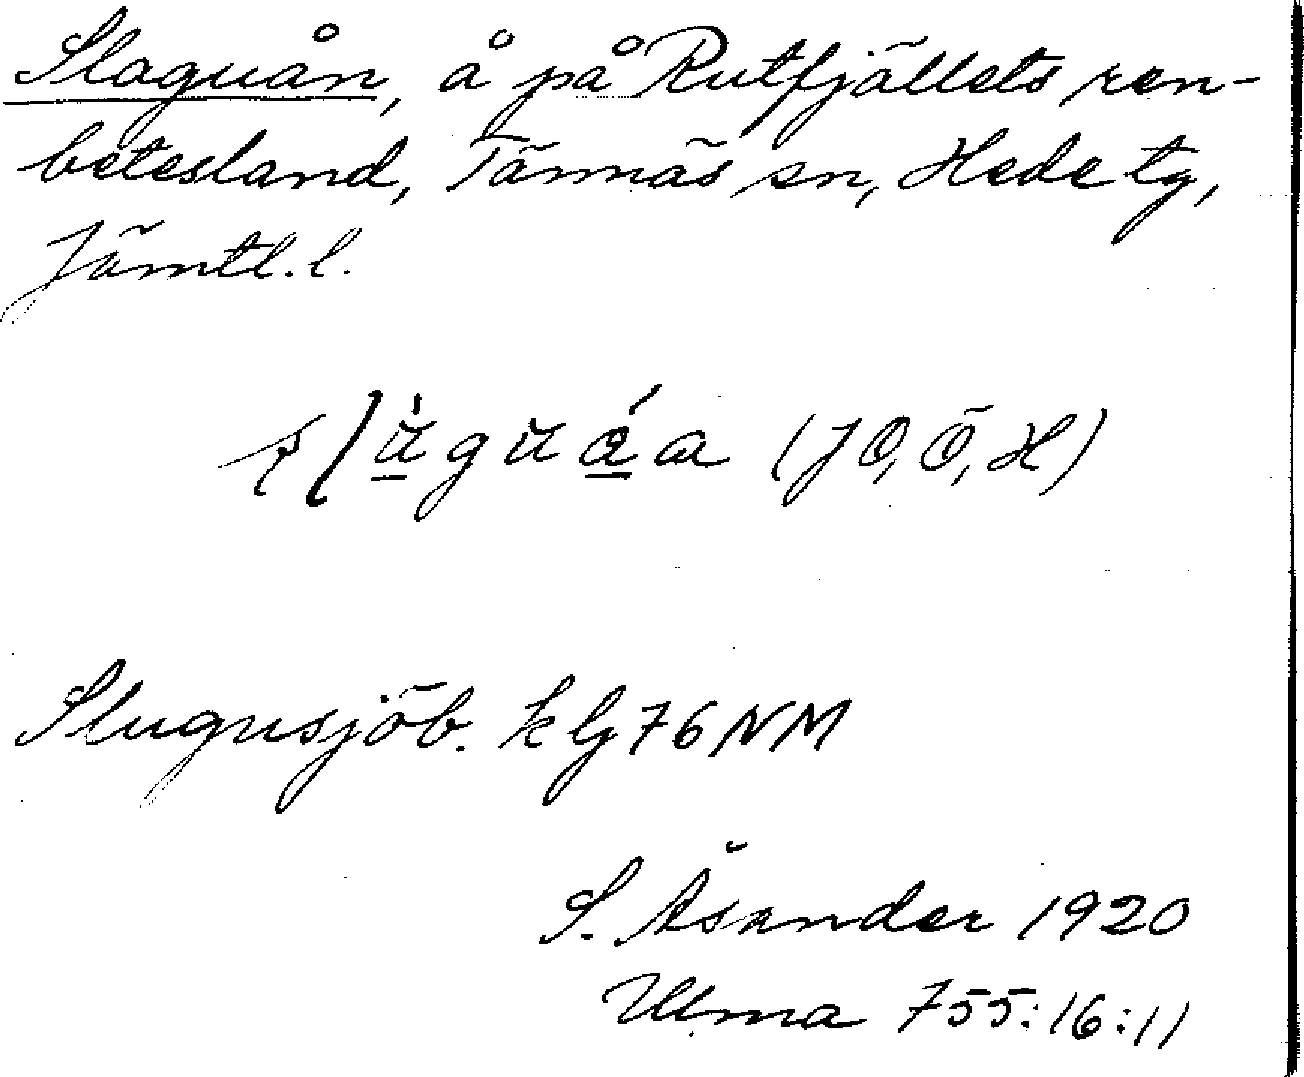 Slaguån, å på Rutfjällets ren-
betesland, Tännäs sn, Hede tg,
Jämtl. l.
(JO, Ö, H)
Slugusjöb. k lj 76 NM
S. Åsander 1920
Ulma 755:16:11